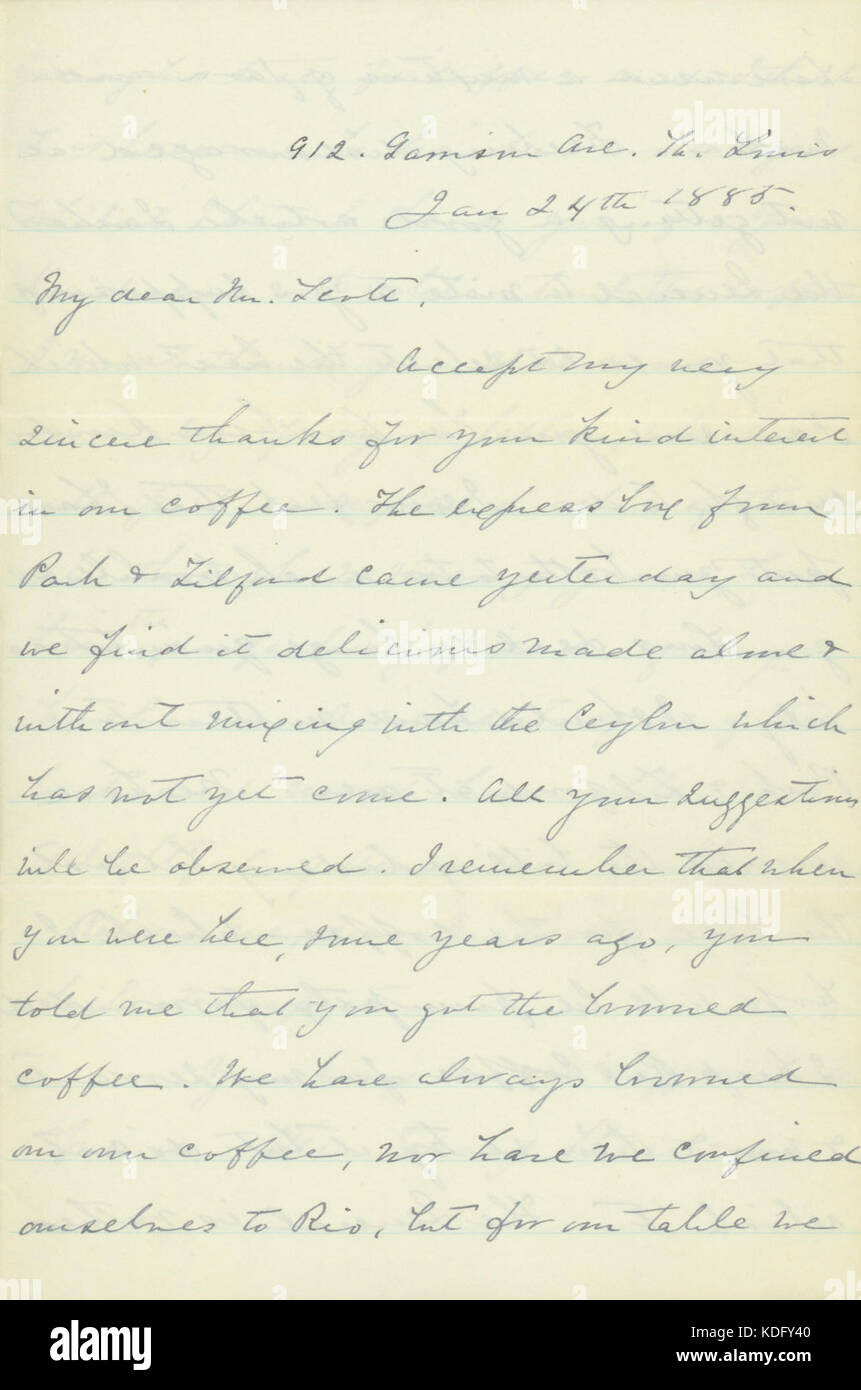 912. Garrison Ave. St. Louis
Jan 24th 1885.
My dear Mr. Scott.
Accept my very
sincere thanks for your kind interest
in our coffee. The express box from
Park & Tilford came yesterday and
we find it delicious made alone &
without mixing with the Ceylon which
has not yet come. All your suggestions
will be observed. I remember that when
you were here, some years ago, you
told me that you got the browned
coffee. We have always browned
our own coffee, nor have we confined
ourselves to Rio, but for our table we
alamy
Image ID: KDFY40
www.alamy.com